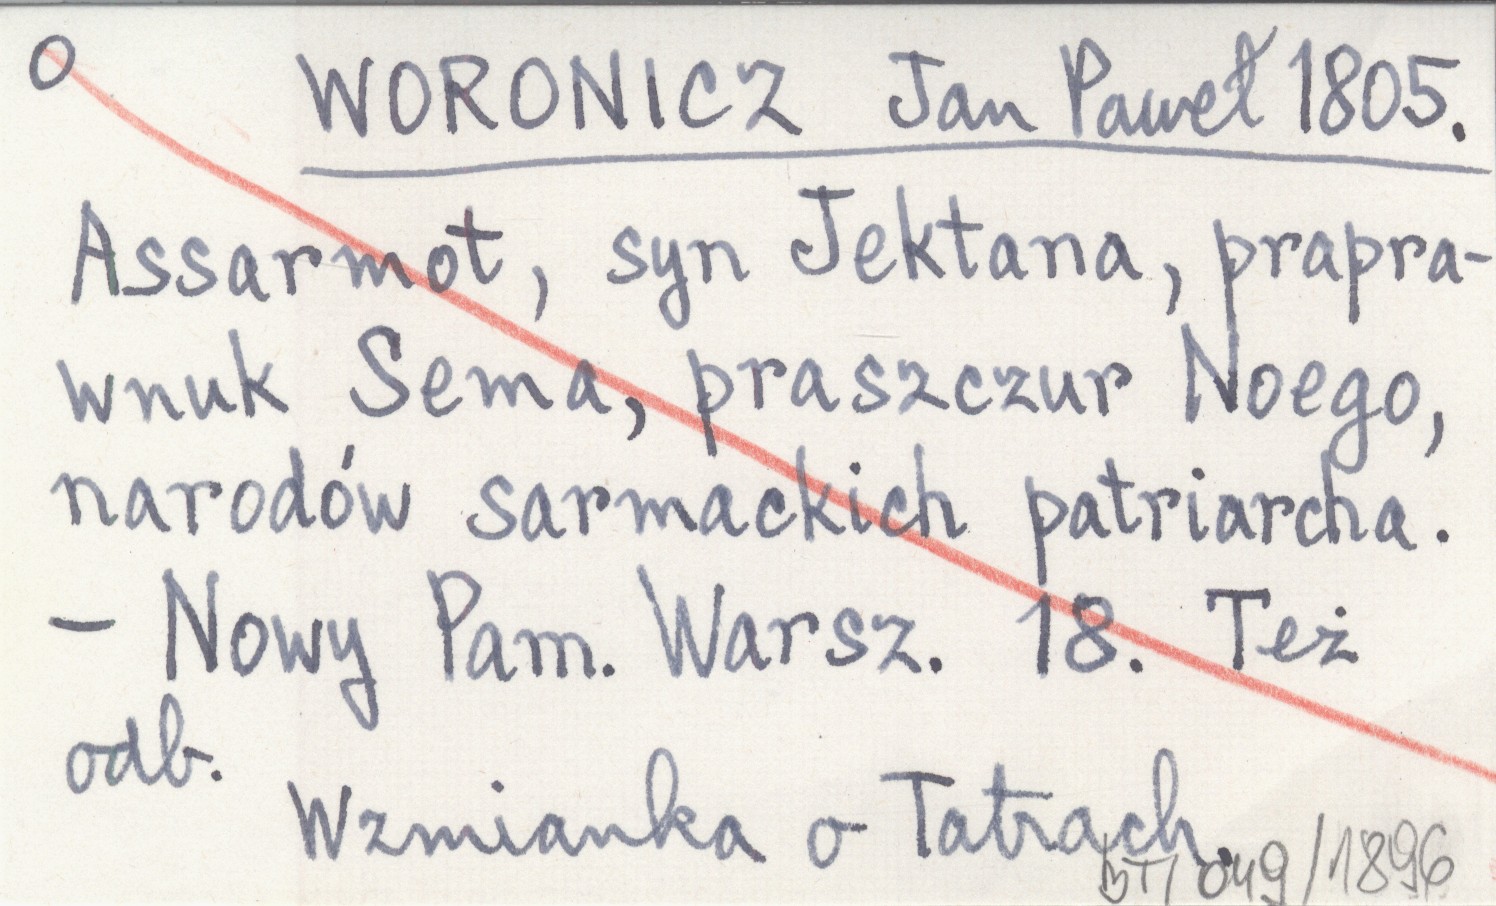 O WORONICZ Jan Paweł 1805.
Assarmot, syn Jektana, prapra-
wnuk Sema, praszczur Noego,
narodów sarmackich patriarcha.
– Nowy Pam. Warsz. 18. Też
odb.
Wzmianka o Tatrach.
BT/049/1896